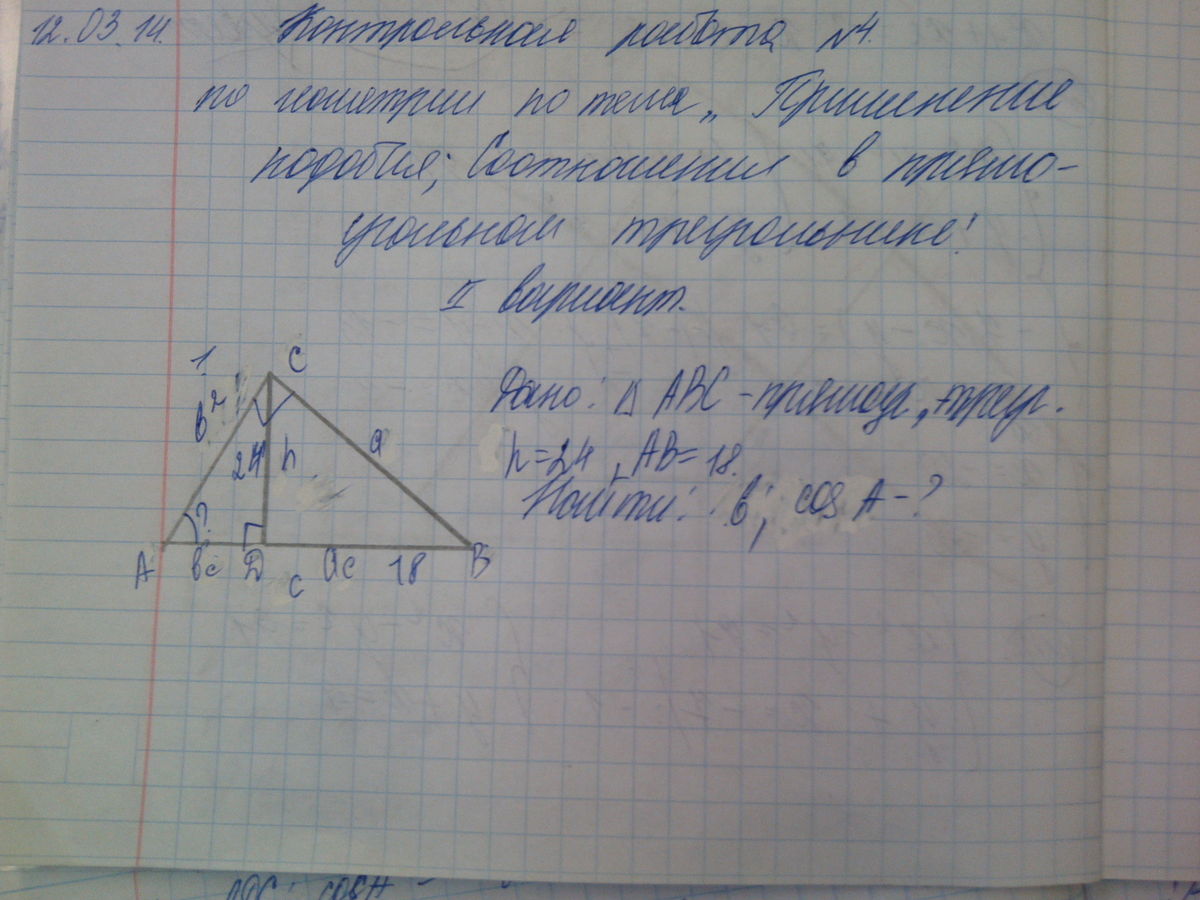 12.03.14. Контрольная работа №4.
по геометрии по теме „Применение
подобия; Соотношения в прямо-
угольном треугольнике!
II вариант.
1 C
в ? a
24 h
? A вс D ас 18 B
c
Дано: △ ABC - прямоуг. треуг.
h=24, AB=18.
Найти: в; cos A - ?